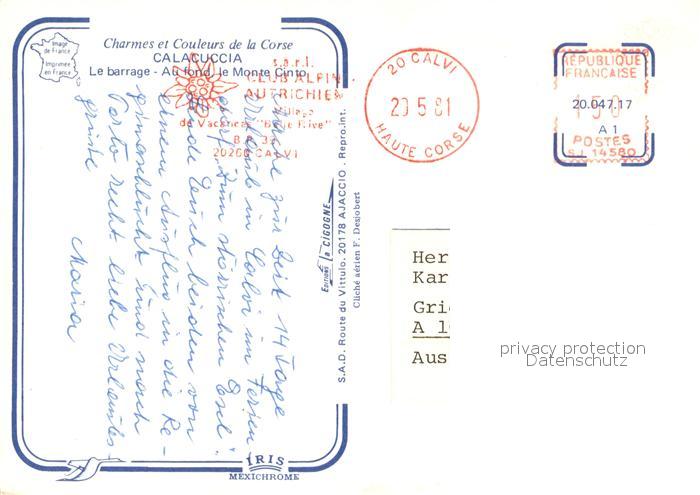 Image
de France
Imprimée
en France
Charmes et Couleurs de la Corse
CALACUCCIA
Le barrage - Au fond, le Monte Cinto
s.a.r.l.
CLUB ALPIN
AUTRICHIEN
Village
de Vacances "Belle Rive"
20260 CALVI
20 CALVI
20 5 81
HAUTE CORSE
RÉPUBLIQUE
FRANÇAISE
20.047.17
150
A 1
POSTES
S.J. 14580
zur Zeit 14 Tage
Urlaub in Calvi im Ferien
dorf zum störrischen Esel
sende Euch beiden von
einem Ausflug in die Re-
nach
Porto recht liebe Urlaubs-
grüße
Maria
Editions la CIGOGNE
S.A.D. Route du Vittulo. 20178 AJACCIO . Repro.int.
Cliché aérien F. Desjobert
Her
Kar
Gri
A 1
Aus
privacy protection
Datenschutz
IRIS
MEXICHROME